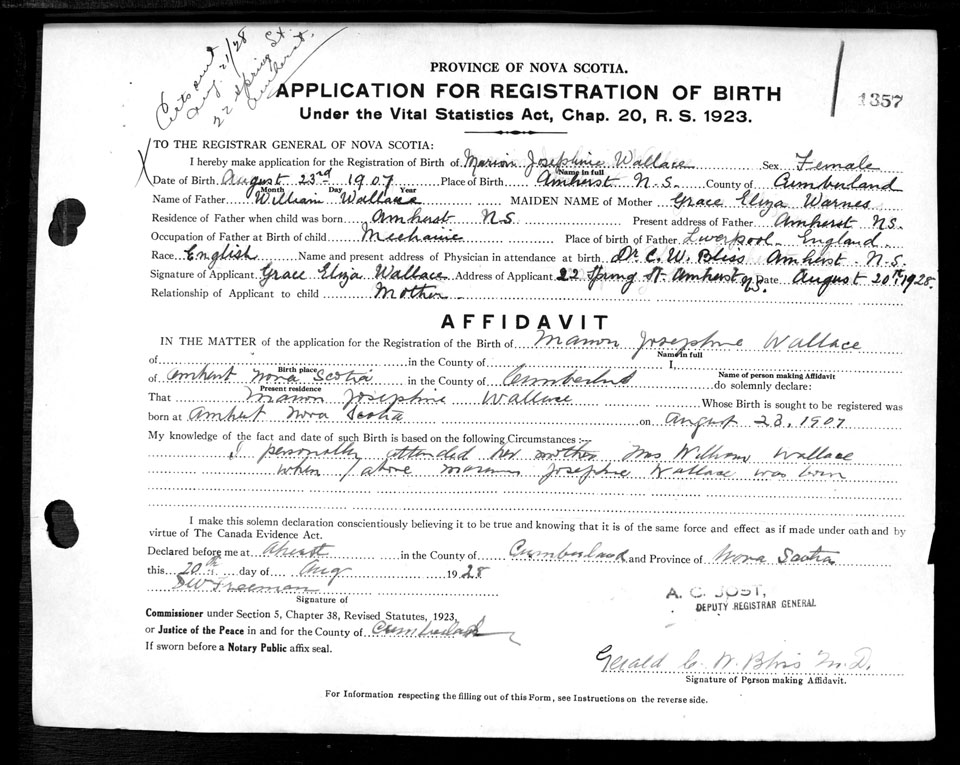 Certs sent
Aug. 21/28
22 Spring St.
Amherst.
PROVINCE OF NOVA SCOTIA.
APPLICATION FOR REGISTRATION OF BIRTH
1357
Under the Vital Statistics Act, Chap. 20, R. S. 1923.
TO THE REGISTRAR GENERAL OF NOVA SCOTIA:
I hereby make application for the Registration of Birth of Marion Josephine Wallace Sex Female
Name in full
Date of Birth August 23rd 1907 Place of Birth Amherst N.S. County of Cumberland
Month Day Year
Name of Father William Wallace MAIDEN NAME of Mother Grace Eliza Warnes
Residence of Father when child was born Amherst NS Present address of Father Amherst NS.
Occupation of Father at Birth of child Mechanic Place of birth of Father Liverpool England
Race English Name and present address of Physician in attendance at birth Dr C. W. Bliss Amherst. N.S.
Signature of Applicant Grace Eliza Wallace Address of Applicant 22 Spring St. Amherst NS. Date August 20th, 1928.
Relationship of Applicant to child Mother
AFFIDAVIT
IN THE MATTER of the application for the Registration of the Birth of Marion Josephine Wallace
Name in full
of in the County of I,
Birth place Name of person making Affidavit
of Amherst Nova Scotia in the County of Cumberland do solemnly declare:
Present residence
That Marion Josephine Wallace Whose Birth is sought to be registered was
born at Amherst Nova Scotia on August 23, 1907
My knowledge of the fact and date of such Birth is based on the following Circumstances :—
I personally attended her mother Mrs William Wallace
when above Marion Josephine Wallace was born
I make this solemn declaration conscientiously believing it to be true and knowing that it is of the same force and effect as if made under oath and by
virtue of The Canada Evidence Act.
Declared before me at Amherst in the County of Cumberland and Province of Nova Scotia
this 20th day of Aug 1928
DW Freeman
Signature of
A. C. JOST,
DEPUTY REGISTRAR GENERAL
Commissioner under Section 5, Chapter 38, Revised Statutes, 1923,
or Justice of the Peace in and for the County of Cumberland
If sworn before a Notary Public affix seal.
Gerald C. W. Bliss M.D.
Signature of Person making Affidavit.
For Information respecting the filling out of this Form, see Instructions on the reverse side.